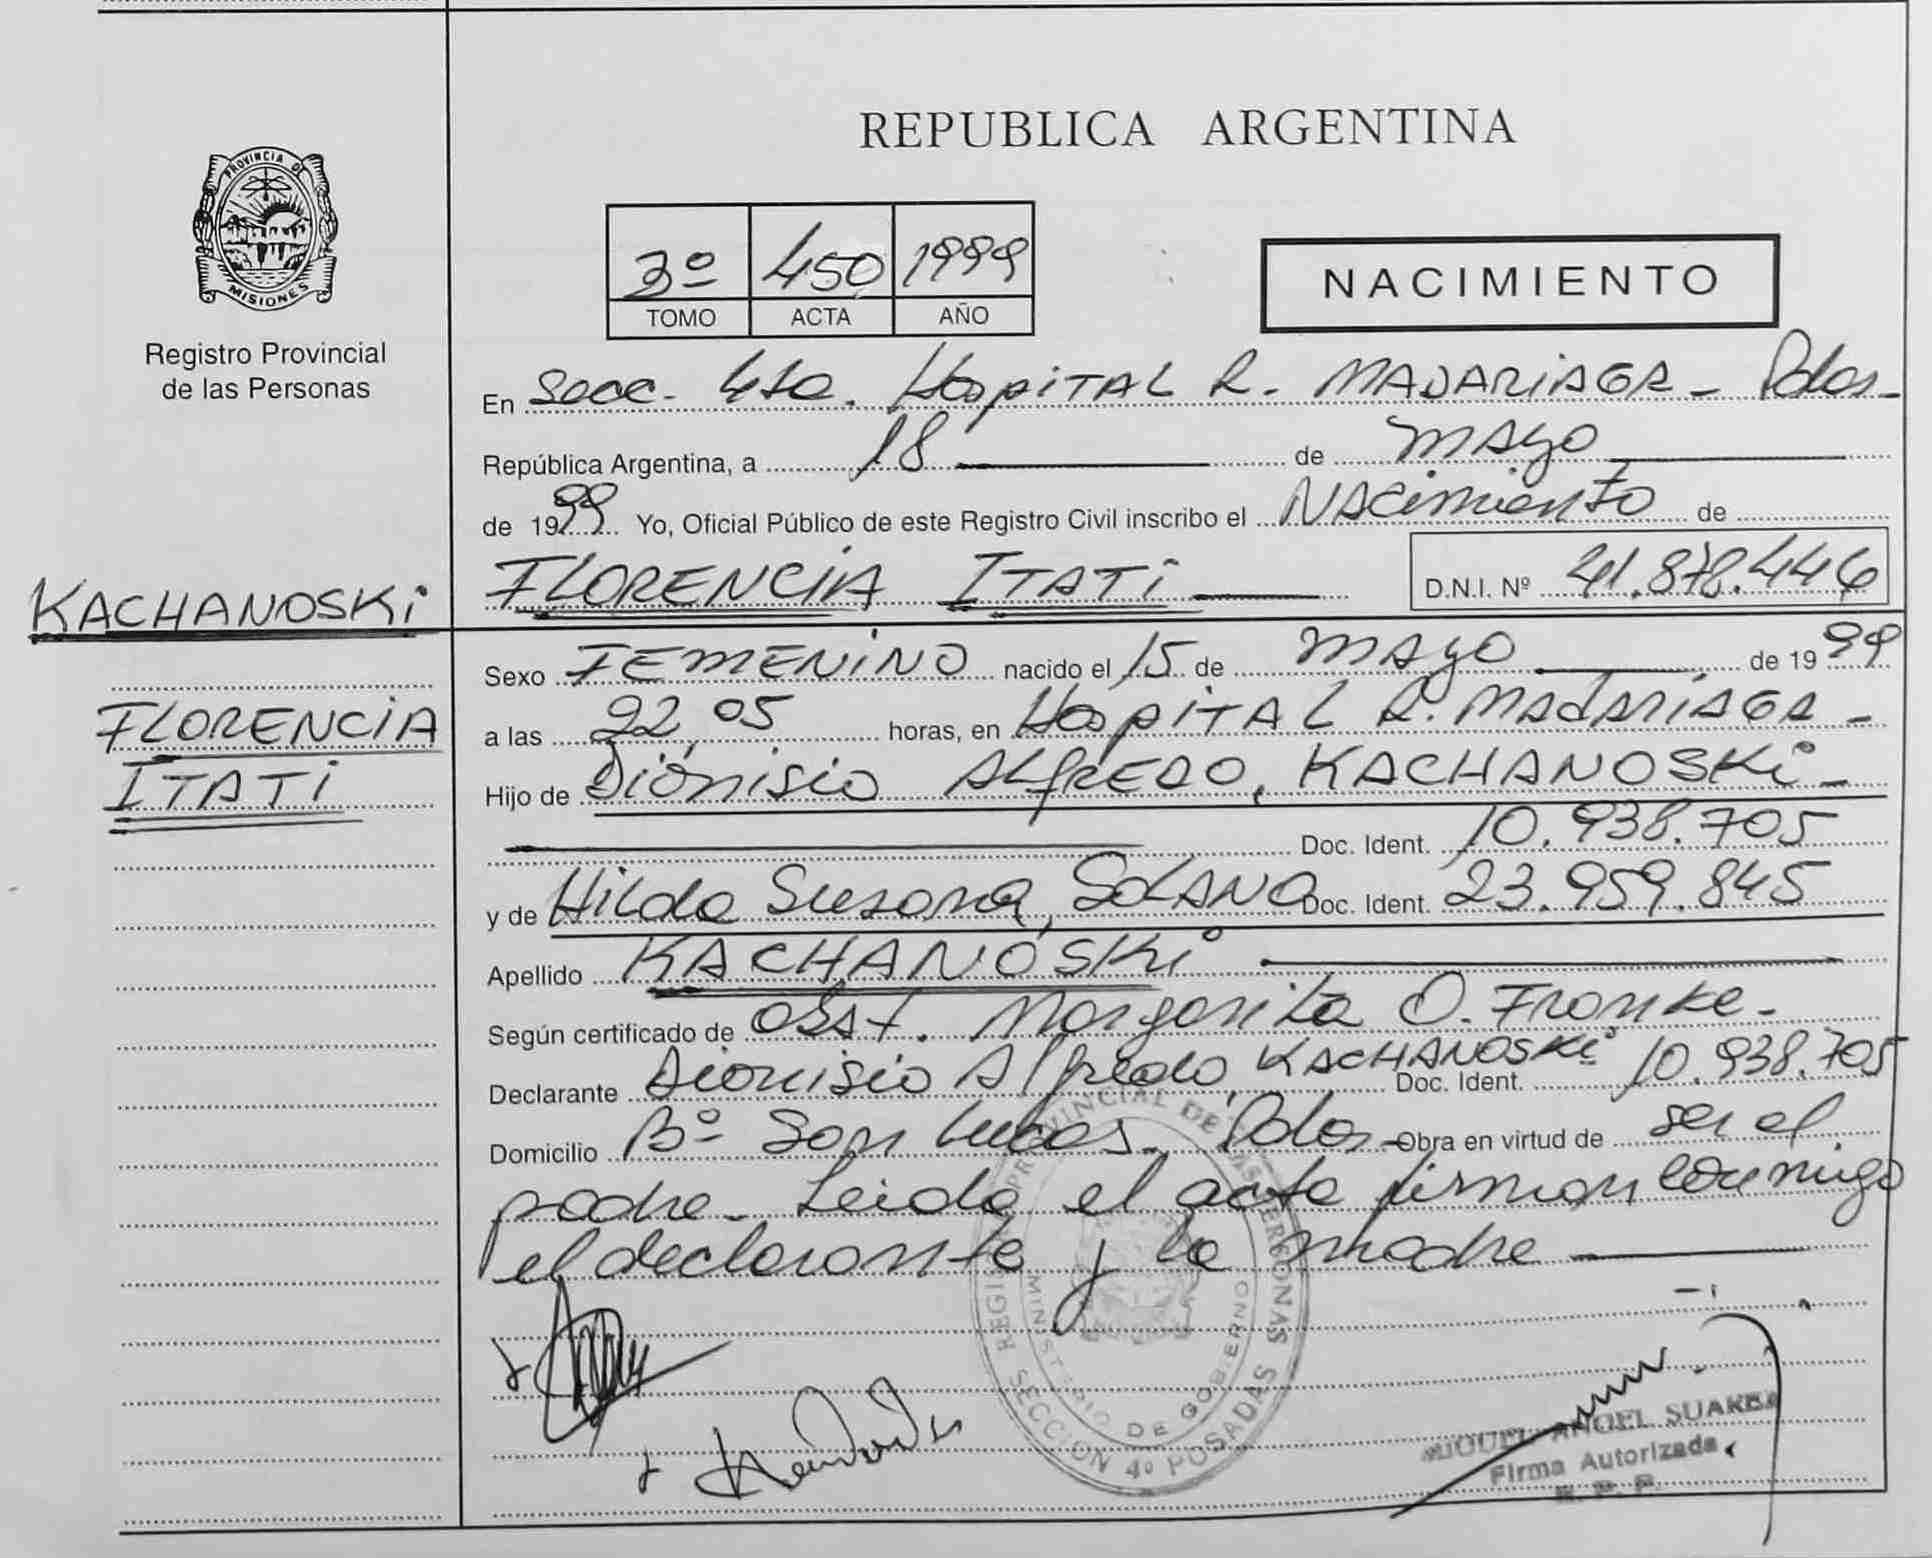 REPUBLICA ARGENTINA
PROVINCIA DE
MISIONES
Registro Provincial
de las Personas
3º 450 1999
TOMO ACTA AÑO
NACIMIENTO
En Secc. 4ta. Hospital R. MADARIAGA - Pdas -
República Argentina, a 18 de mayo
de 1999 Yo, Oficial Público de este Registro Civil inscribo el NAcimiento de
KACHANOSKi
FLORENCiA ITATi D.N.I. Nº 41.878.446
FLORENCiA
ITATi
Sexo FEMENiNO nacido el 15 de mayo de 1999
a las 22,05 horas, en Hospital R. MADARIAGA -
Hijo de Dionisio ALfREDO, KACHANOSKi -
Doc. Ident. 10.938.705
y de Hilda Susana, SOLANO Doc. Ident. 23.959.845
Apellido KACHANOSKi
Según certificado de Obst. Margarita O. Franke -
Declarante Dionisio Alfredo KACHANOSKi Doc. Ident. 10.938.705
Domicilio Bº San Lucas - Pdas - Obra en virtud de ser el
padre - Leida el acta firman conmigo
el declarante y la madre
REGISTRO PROVINCIAL DE LAS PERSONAS
MINISTERIO DE GOBIERNO
SECCION 4º POSADAS
MIGUEL ANGEL SUAREZ
Firma Autorizada
R. P. P.